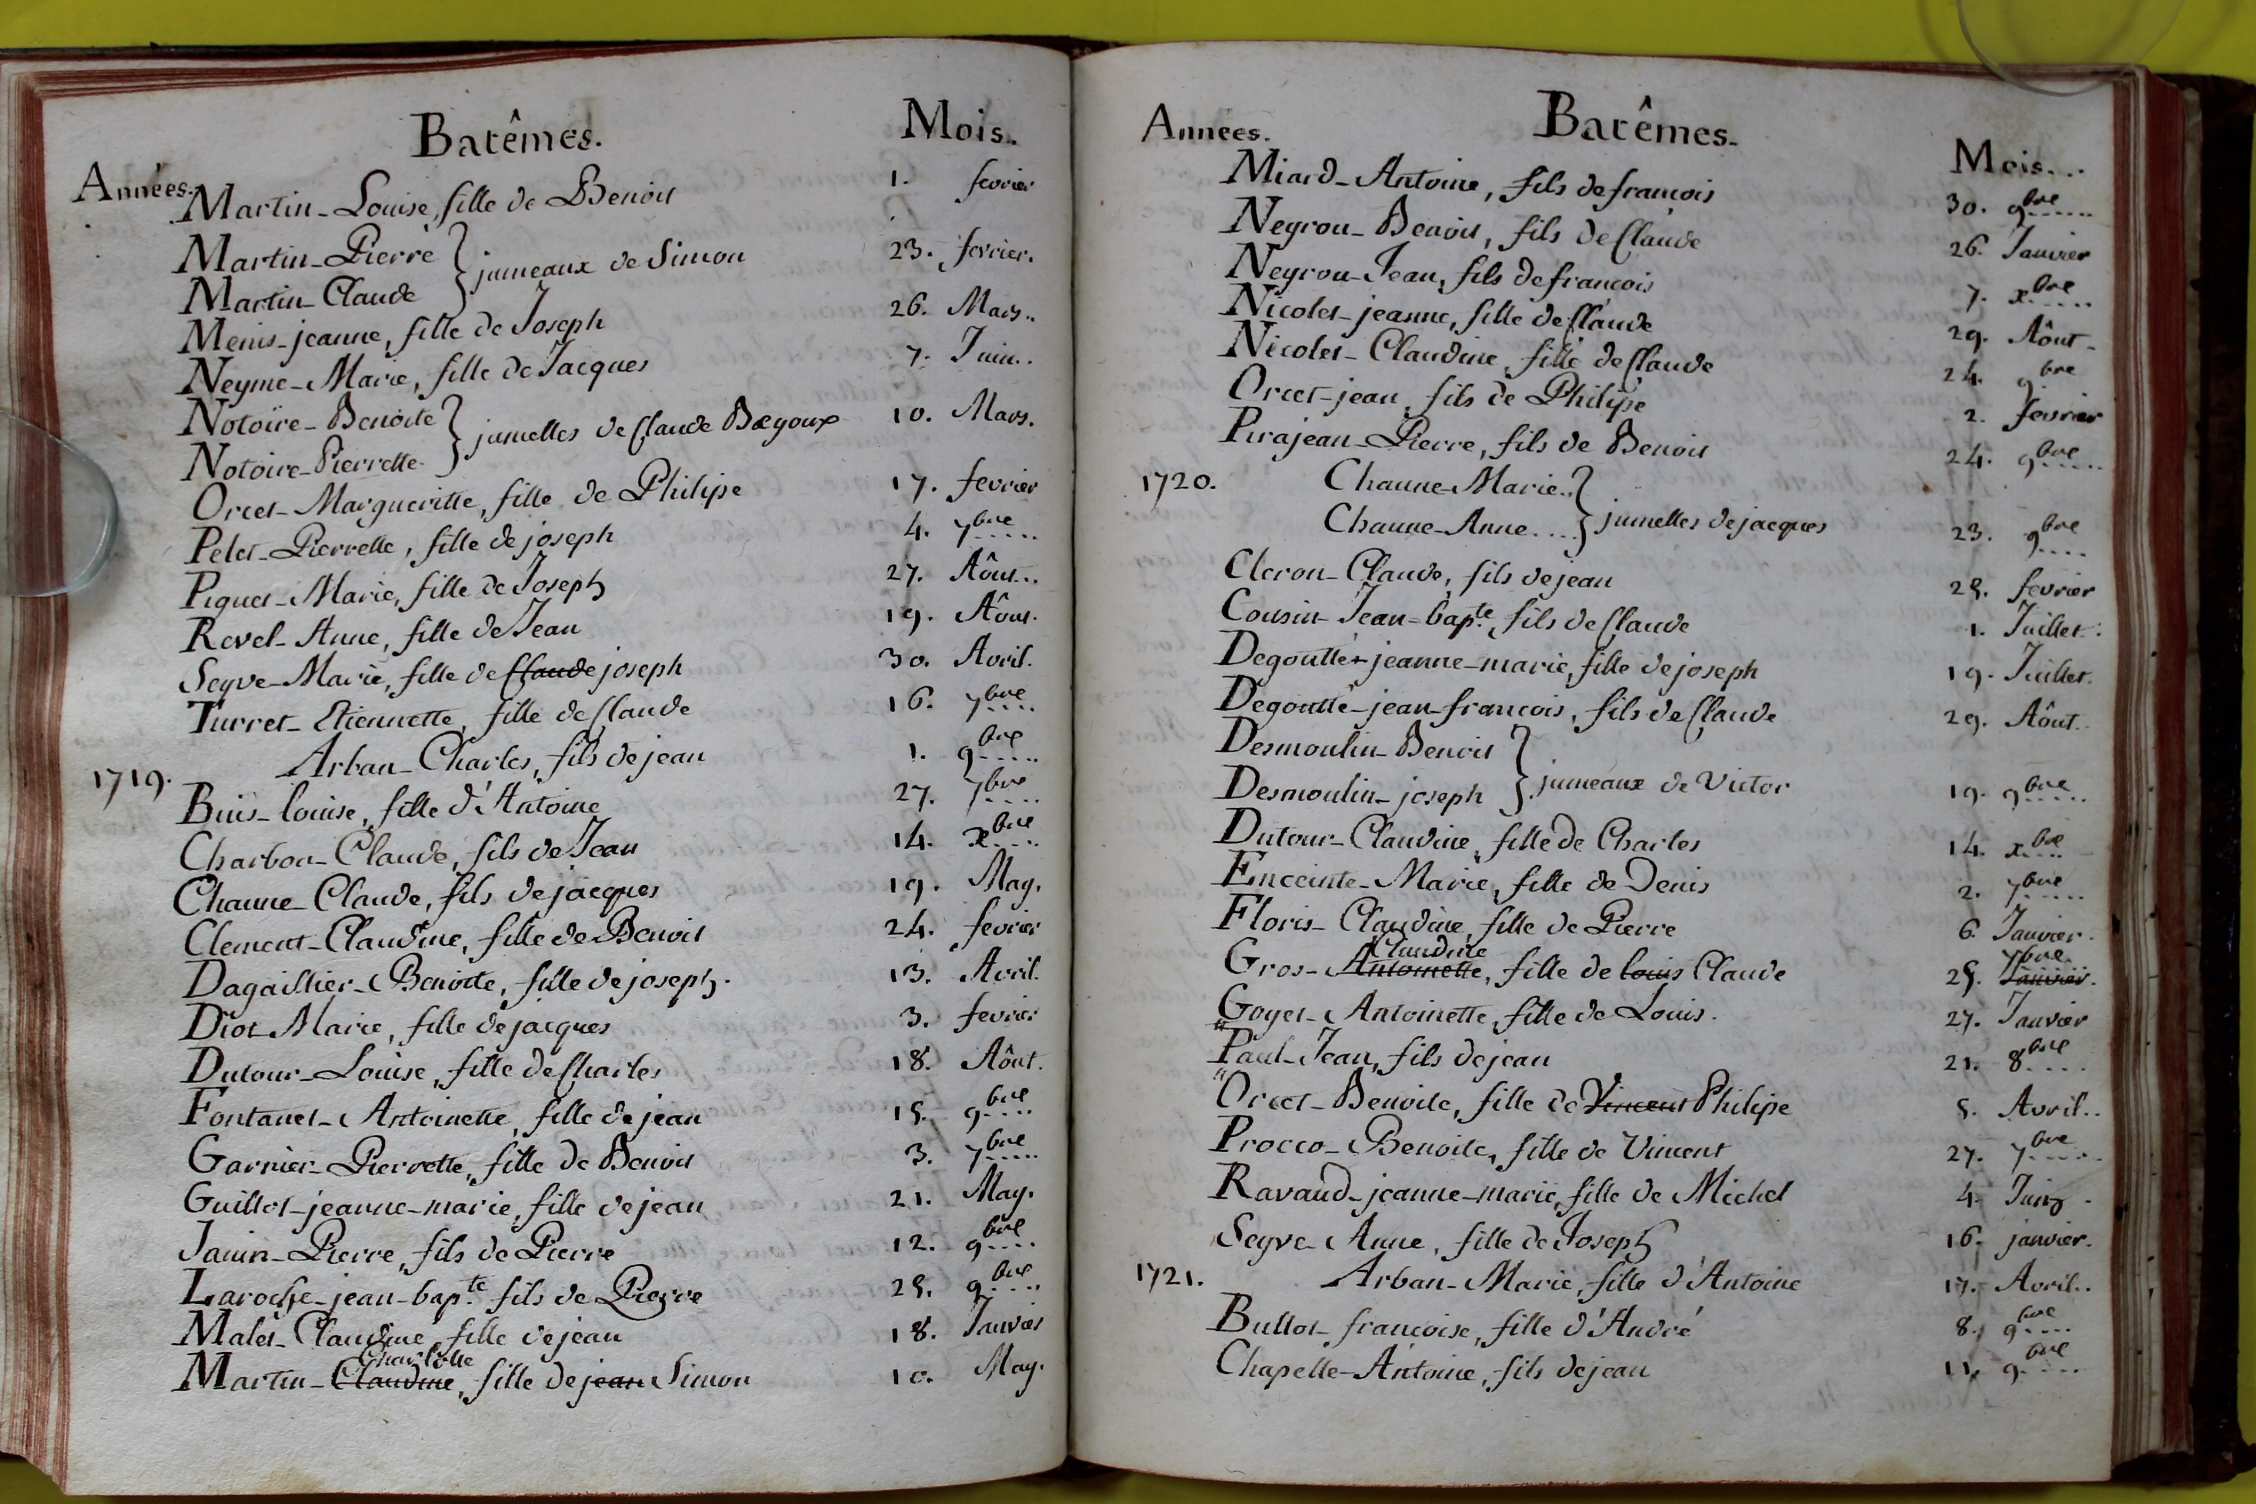 Batêmes. Mois.
Années.
Martin - Louise, fille de Benoit 1. fevrier
Martin - Pierre } jumeaux de Simon 23. fevrier.
Martin - Claude
Menis - jeanne, fille de Joseph 26. Mars..
Neyme - Marie, fille de Jacques 7. Juin..
Notoire - Benoite } jumelles de Claude Bægoux 10. Mars.
Notoire - Pierrette.
Orcet - Margueritte, fille de Philipe 17. fevrier
Pelet - Pierrette, fille de joseph 4. 7bre.....
Piquet - Marie, fille de Joseph 27. Aôut...
Revel - Anne, fille de Jean 19. Aôut.
Seyve - Marie, fille de Claude joseph 30. Avril.
Turret - Etiennette, fille de Claude 16. 7bre....
1719. Arban - Charles, fils de jean 1. 9bre.....
Buis - louise, fille d'Antoine 27. 7bre....
Charbon - Claude, fils de Jean 14. xbre....
Chaune - Claude, fils de jacques 19. May.
Clement - Claudine, fille de Benoit 24. fevrier
Dagaillier - Benoite, fille de joseph. 13. Avril.
Diot Marie, fille de jacques 3. fevrier
Dutour - Louise, fille de Charles 18. Aôut.
Fontanet - Antoinette, fille de jean 15. 9bre....
Garnier - Pierrette, fille de Benoit 3. 7bre.....
Guillot - jeanne - marie, fille de jean 21. May.
Janin - Pierre, fils de Pierre 12. 9bre....
Laroche - jean - bapte. fils de Pierre 25. 9bre....
Malet - Claudine, fille de jean 18. Janvier
Charlotte
Martin - Claudine, fille de jean Simon 10. May.
Années. Batêmes. Mois...
Miard - Antoine, fils de francois 30. 9bre......
Neyrou - Benoit, fils de Claude 26. Janvier
Neyrou - Jean, fils de francois 7. xbre.....
Nicolet - jeanne, fille de Claude 29. Aôut -
Nicolet - Claudine, fille de Claude 24. 9bre
Orcet - jean, fils de Philipe 2. fevrier
Pirajean - Pierre, fils de Benoit 24. 9bre.....
1720. Chaune - Marie.. } jumelles de jacques 23. 9bre....
Chaune - Anne....
Cleron - Claude, fils de jean 25. fevrier
Cousin - Jean = bapte. fils de Claude 1. Juillet.
Degoutte - jeanne - marie, fille de joseph 19. Juillet.
Degoutte - jean - francois, fils de Claude 29. Aôut..
Desmoulin - Benoit } jumeaux de Victor 19. 9bre.....
Desmoulin - joseph
Dutour - Claudine, fille de Charles 14. xbre....
Enceinte - Marie, fille de Denis 2. 7bre.....
Floris - Claudine, fille de Pierre 6. Janvier.
Claudine 7bre.
Gros - Antoinette, fille de louis Claude 25. Janvier.
Goyet - Antoinette, fille de Louis. 27. Janvier
" Paul - Jean, fils de jean 21. 8bre.....
" Orcet - Benoite, fille de Vincent Philipe 5. Avril..
Procco - Benoite, fille de Vincent 27. 7bre.....
Ravaud - jeanne - marie, fille de Michel 4. Juin.
Seyve - Anne, fille de Joseph 16. janvier.
1721. Arban - Marie, fille d'Antoine 17. Avril..
Bullot - francoise, fille d'André 8. 9bre....
Chapelle - Antoine, fils de jean 11. 9bre....